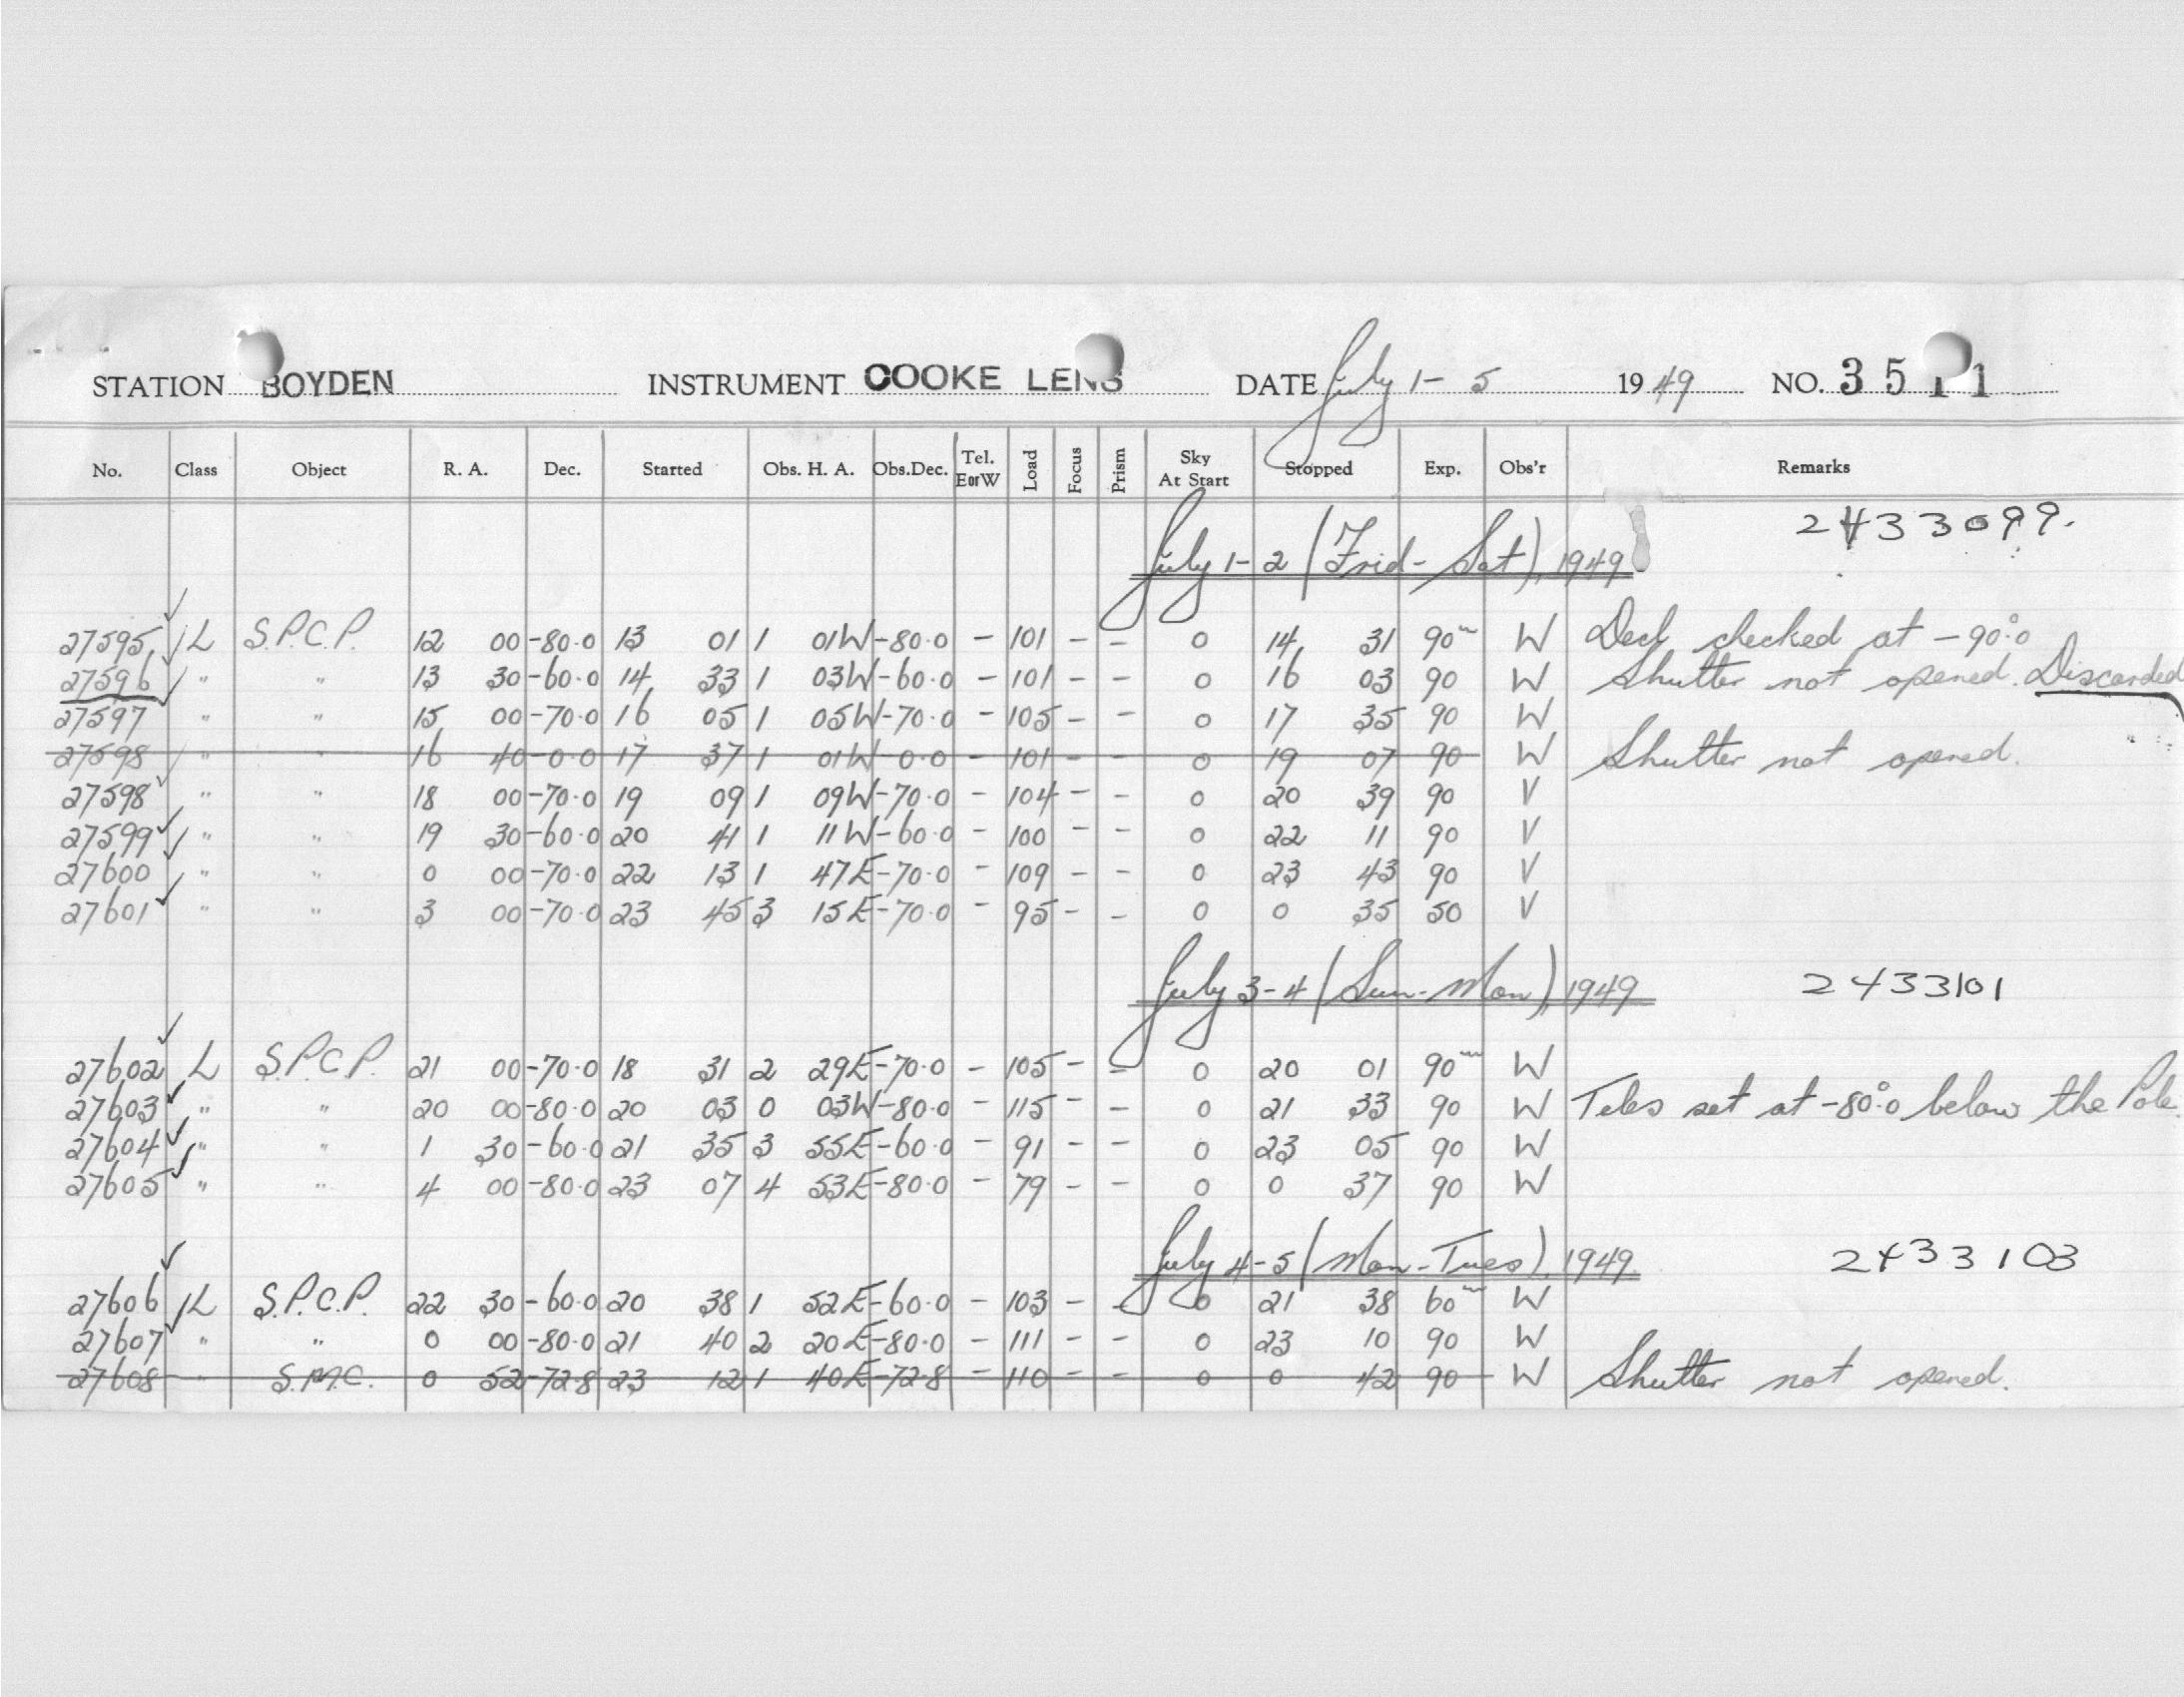 STATION BOYDEN INSTRUMENT COOKE LENS DATE July 1- 5 1949 NO. 3511
No. Class Object R. A. Dec. Started Obs. H. A. Obs.Dec. Tel. EorW Load Focus Prism Sky At Start Stopped Exp. Obs'r Remarks
2433099.
July 1-2 (Frid-Sat), 1949
27595 L S.P.C.P. 12 00 -80.0 13 01 1 01W -80.0 - 101 - - 0 14 31 90m W Decl checked at -90°.0
27596 " " 13 30 -60.0 14 33 1 03W -60.0 - 101 - - 0 16 03 90 W Shutter not opened. Discarded
27597 " " 15 00 -70.0 16 05 1 05W -70.0 - 105 - - 0 17 35 90 W
27598 " " 16 40 -0.0 17 37 1 01W -0.0 - 101 - - 0 19 07 90 W Shutter not opened.
27598 " " 18 00 -70.0 19 09 1 09W -70.0 - 104 - - 0 20 39 90 V
27599 " " 19 30 -60.0 20 41 1 11W -60.0 - 100 - - 0 22 11 90 V
27600 " " 0 00 -70.0 22 13 1 47E -70.0 - 109 - - 0 23 43 90 V
27601 " " 3 00 -70.0 23 45 3 15E -70.0 - 95 - - 0 0 35 50 V
July 3-4 (Sun-Mon), 1949 2433101
27602 L S.P.C.P. 21 00 -70.0 18 31 2 29E -70.0 - 105 - - 0 20 01 90m W
27603 " " 20 00 -80.0 20 03 0 03W -80.0 - 115 - - 0 21 33 90 W Teles set at -80°.0 below the Pole.
27604 " " 1 30 -60.0 21 35 3 55E -60.0 - 91 - - 0 23 05 90 W
27605 " " 4 00 -80.0 23 07 4 53E -80.0 - 79 - - 0 0 37 90 W
July 4-5 (Mon-Tues), 1949 2433103
27606 L S.P.C.P. 22 30 -60.0 20 38 1 52E -60.0 - 103 - - 0 21 38 60m W
27607 " " 0 00 -80.0 21 40 2 20E -80.0 - 111 - - 0 23 10 90 W
27608 " S.M.C. 0 52 -72.8 23 12 1 40E -72.8 - 110 - - 0 0 42 90 W Shutter not opened.